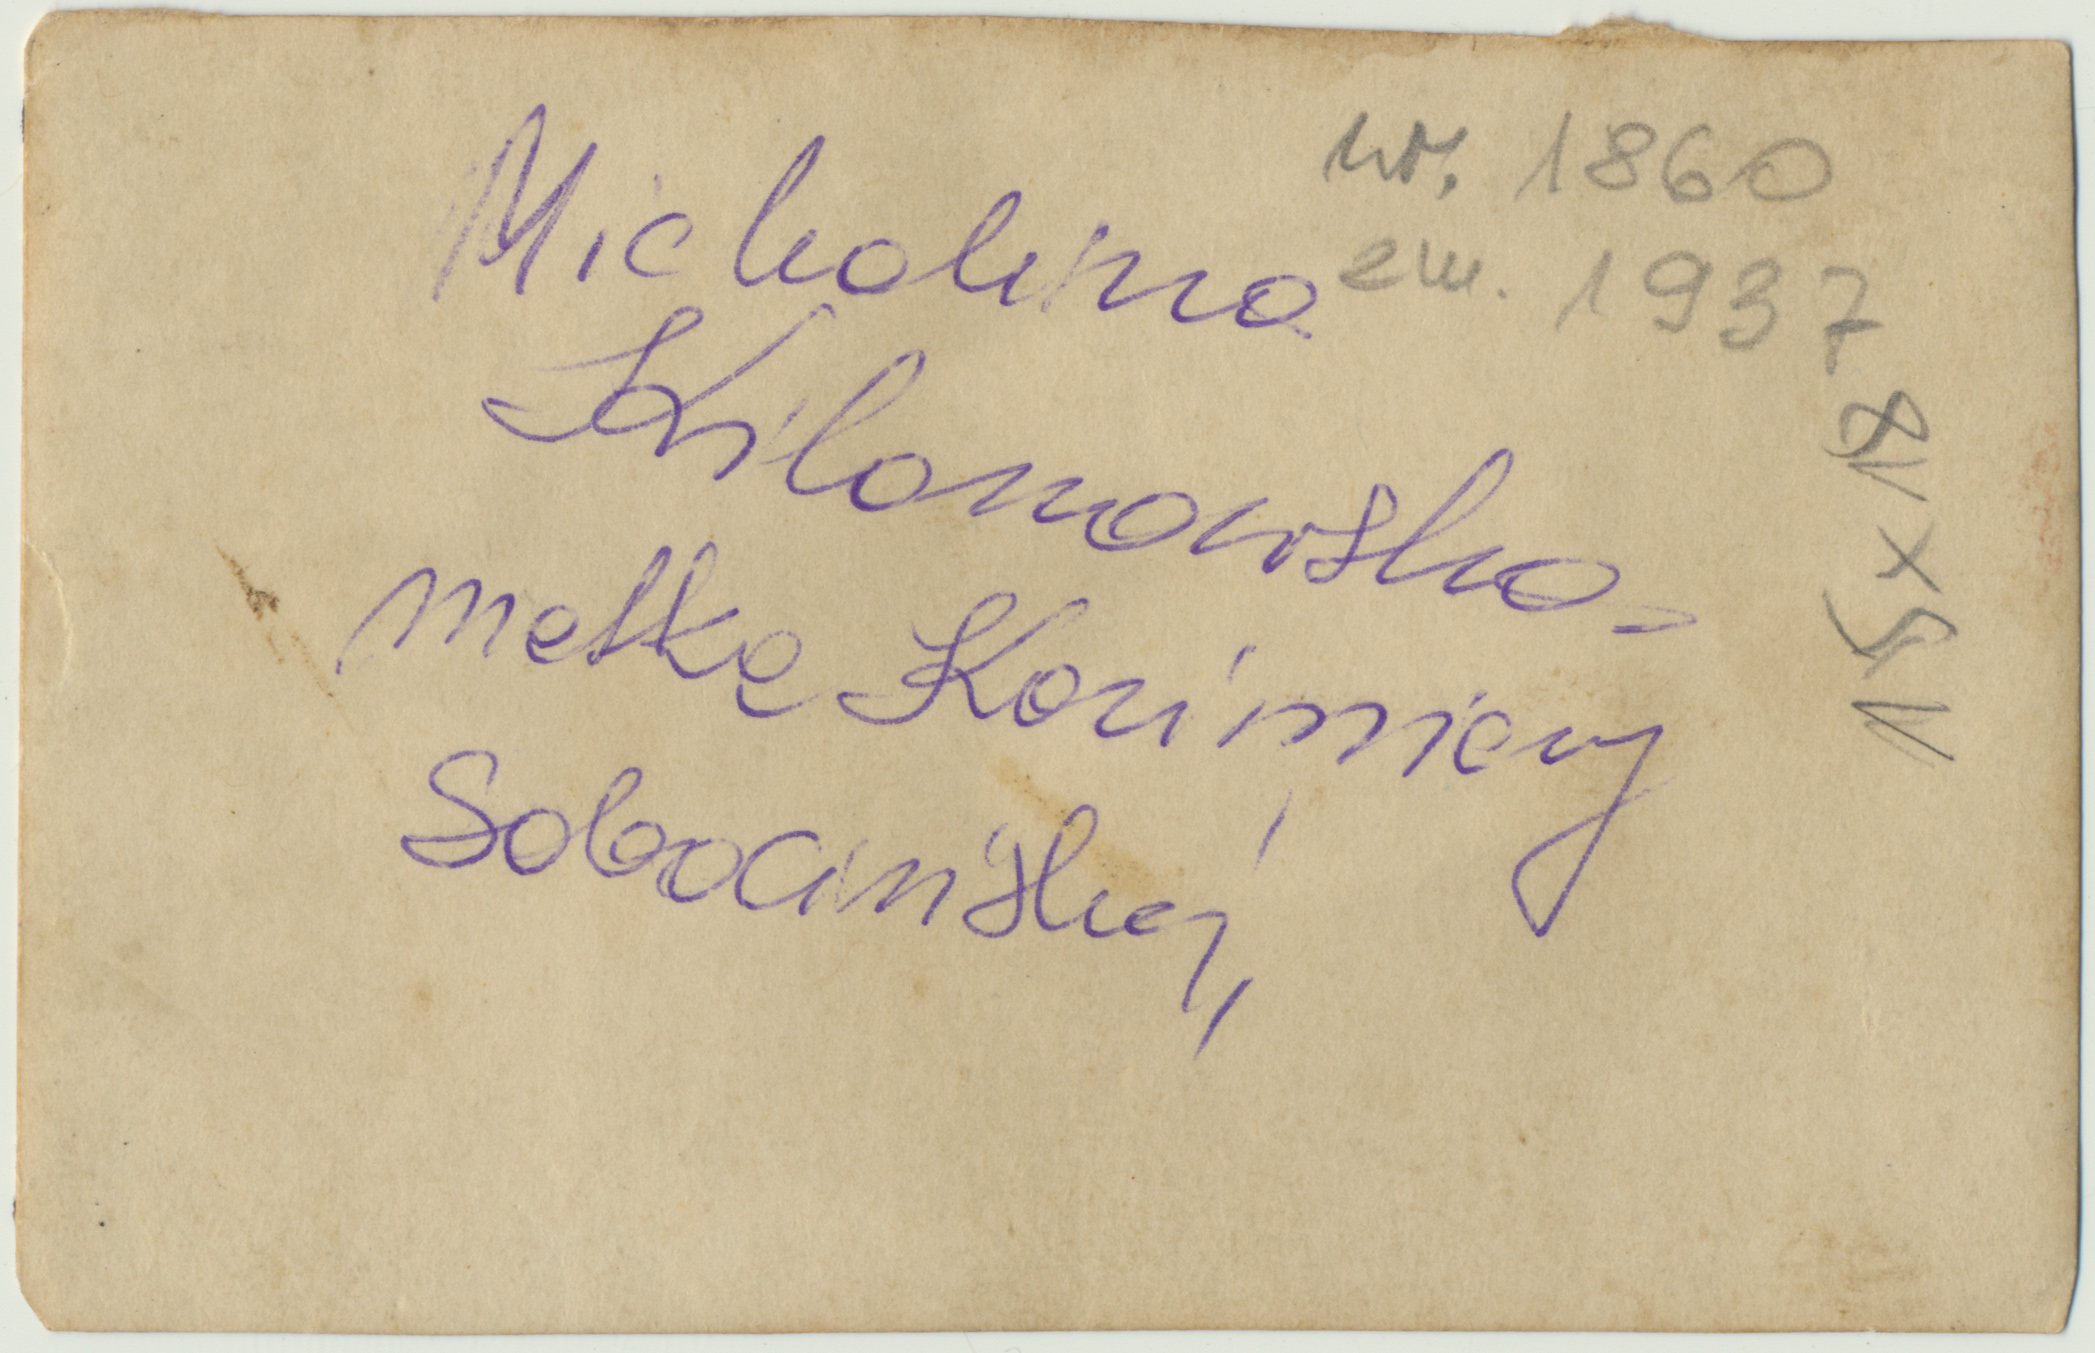 Michalina
ur. 1860
zm. 1937
Kilanowska -
matka Kazimiery
Sobocińskiej
15 x 18